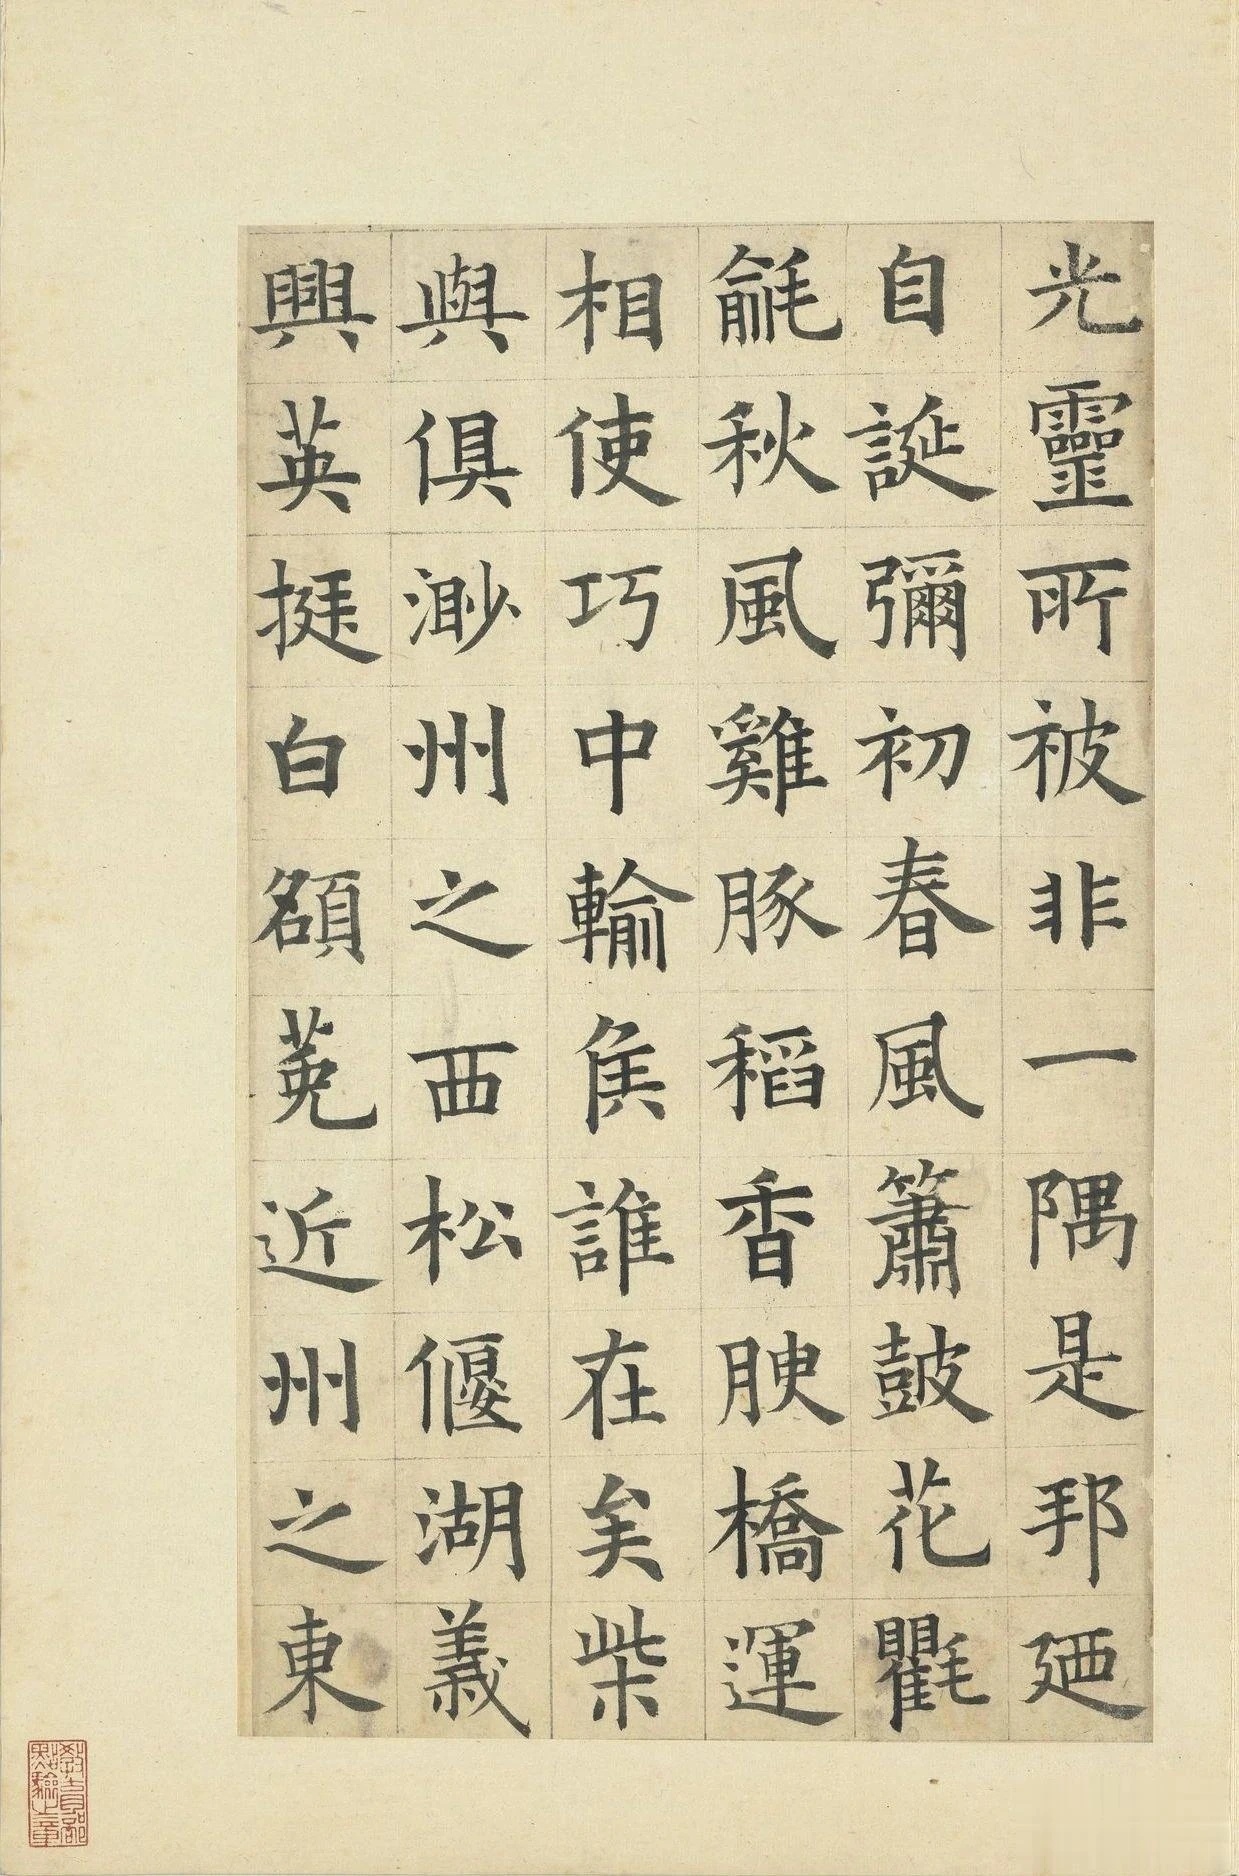 光靈所被非一隅是邦廼
自誕彌初春風簫鼓花氍
毹秋風雞豚稻香腴橋運
相使巧中輸矦誰在矣柴
與俱渺州之西松偃湖義
興英挺白額莬近州之東
教育部點驗之章